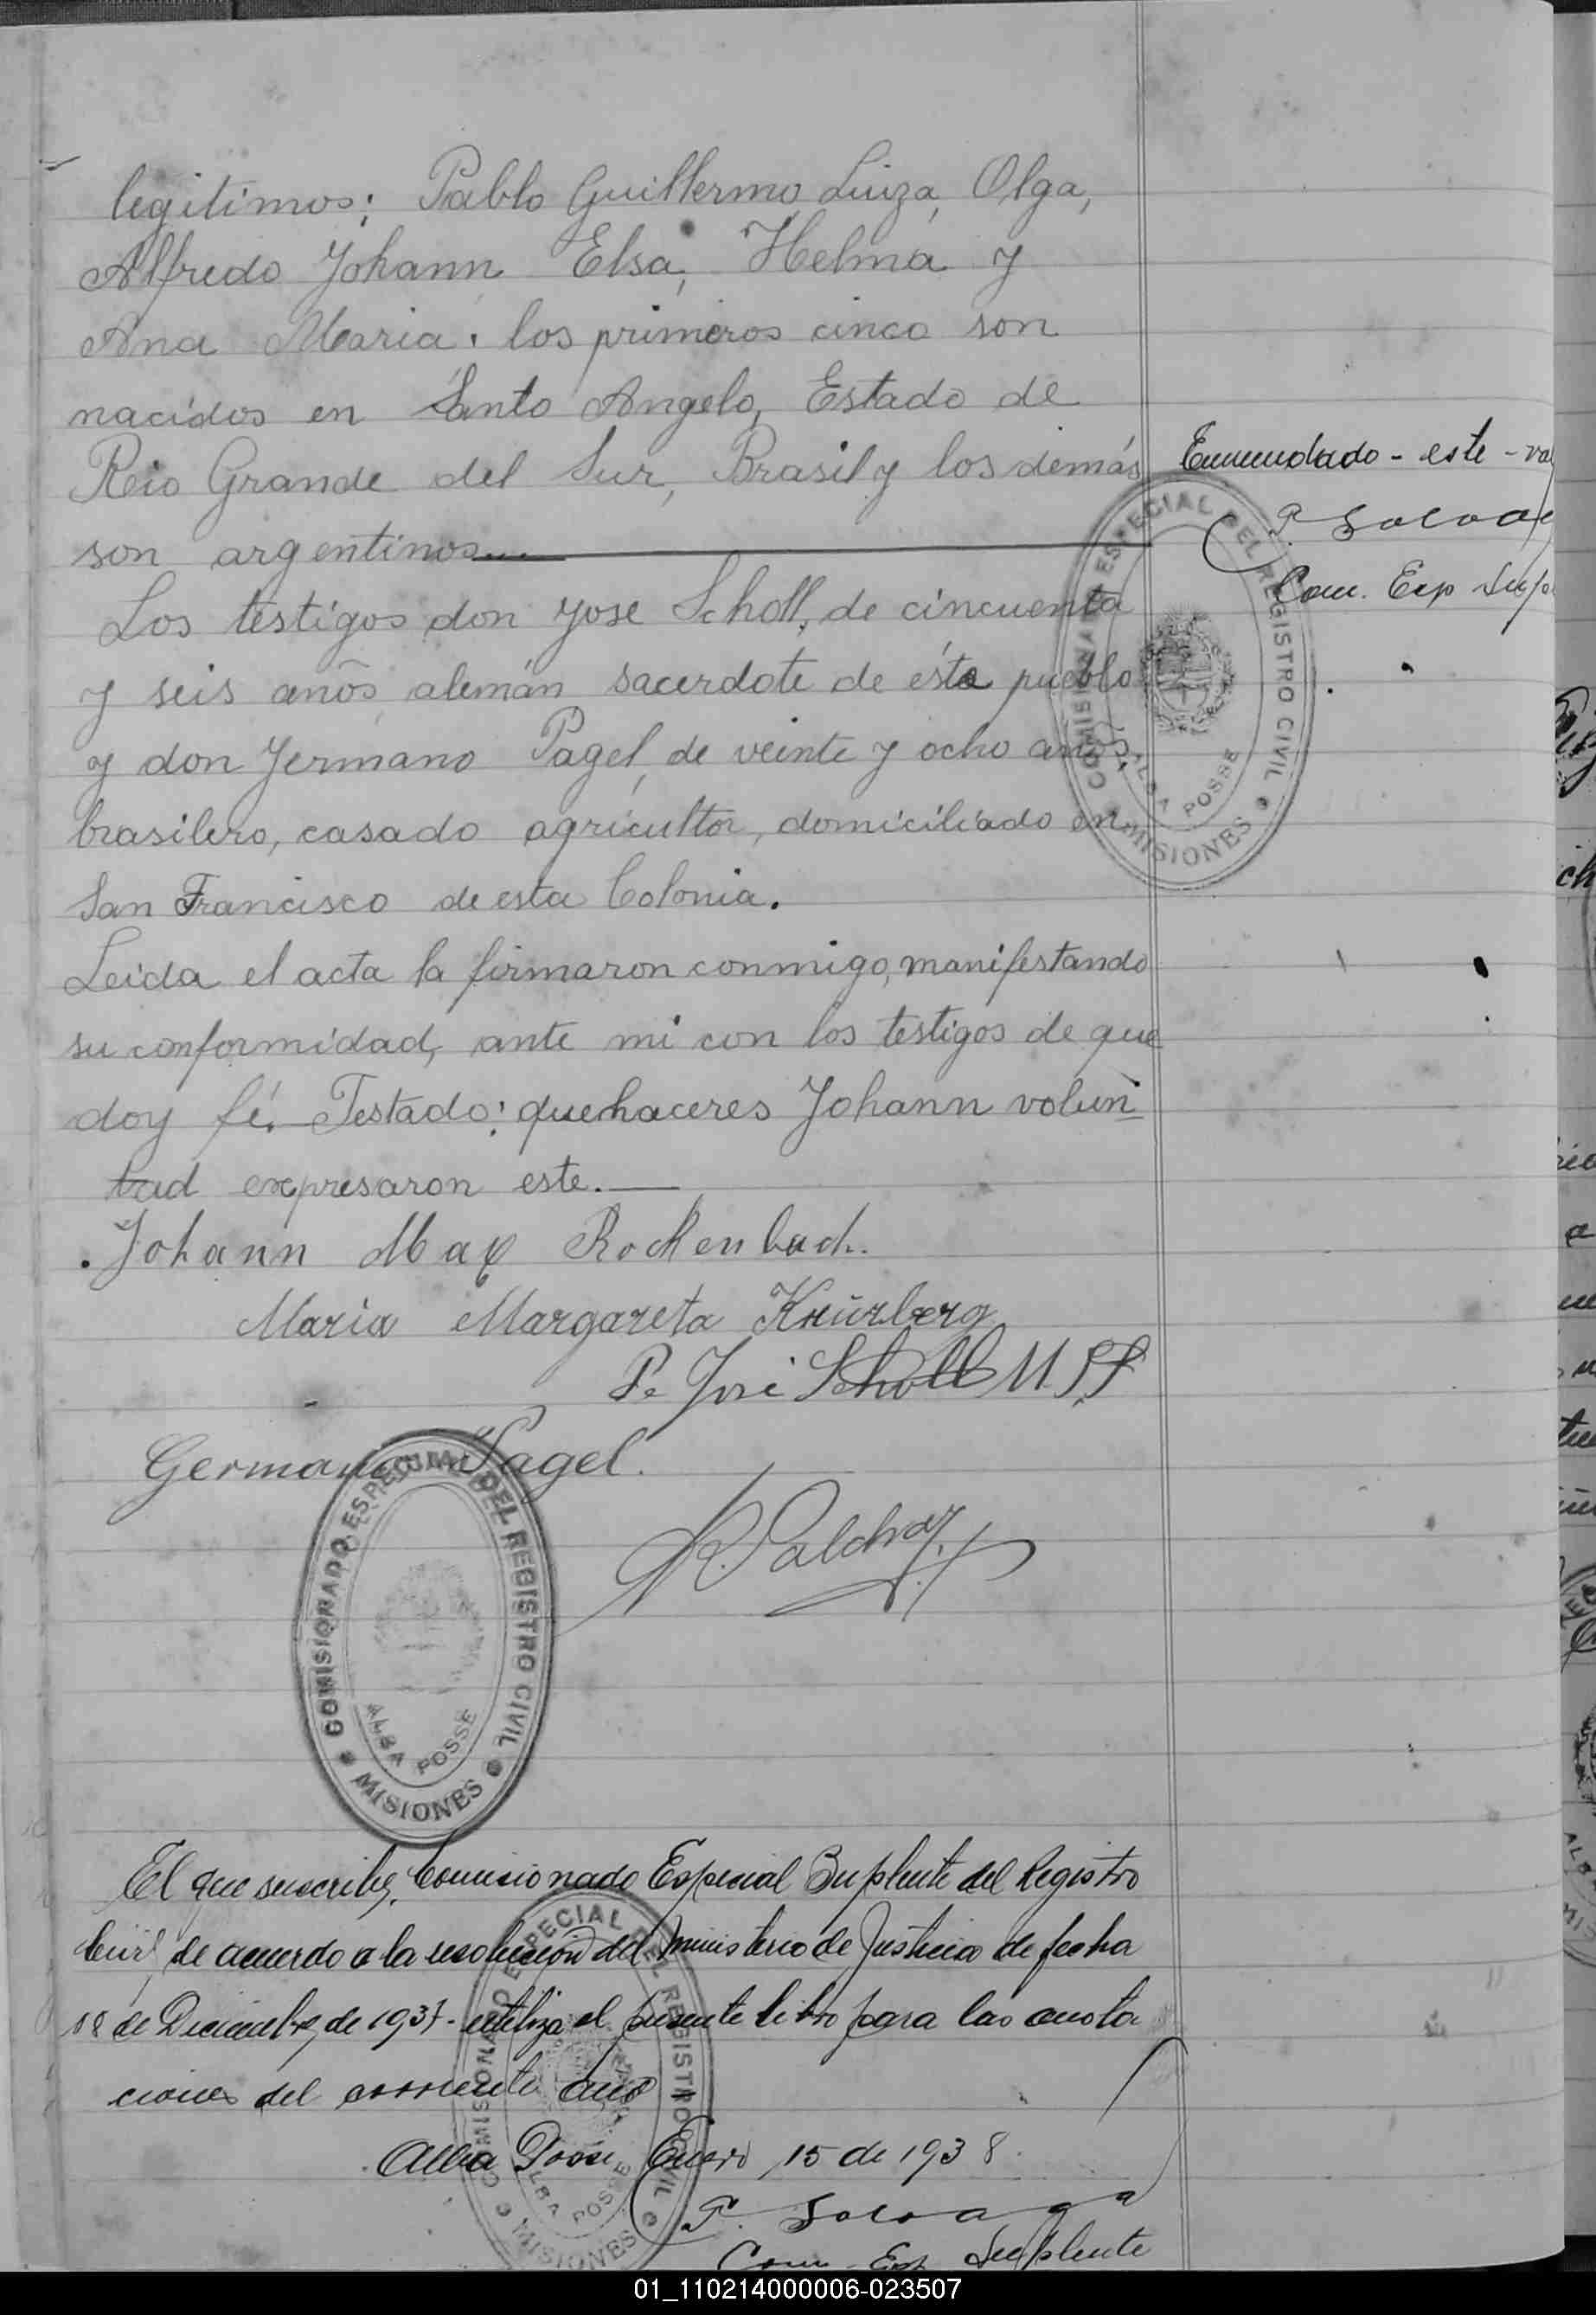 legitimos; Pablo Guillermo, Luiza, Olga,
Alfredo Johann Elsa, Helma y
Ana Maria. los primeros cinco son
nacidos en Santo Angelo, Estado de
Rio Grande del Sur, Brasil y los demás
son argentinos...
Los testigos don Jose Scholl, de cincuenta
y seis años, alemán sacerdote de este pueblo
y don Jermano Pagel, de veinte y ocho años,
brasilero, casado agricultor, domiciliado en
San Francisco de esta Colonia.
Leida el acta la firmaron conmigo, manifestando
su conformidad, ante mi con los testigos de que
doy fé. Testado: quehaceres Johann volun
tad expresaron este.
Johann Max Rockenbach.
Maria Margareta Kreürzberg
P. José Scholl M S F
Germano Pagel.
Enmendado - este - val
Com. Esp Supl
COMISIONADO ESPECIAL DEL REGISTRO CIVIL
ALBA POSSE
MISIONES
COMISIONADO ESPECIAL DEL REGISTRO CIVIL
ALBA POSSE
MISIONES
El que suscribe, Comisionado Especial Suplente del Registro
Civil, de acuerdo a la resolución del Ministerio de Justicia de fecha
18 de Diciembre, de 1937 - utiliza el presente libro para las anota
ciones del corriente año
Alba Posse, Enero 15 de 1938.
Com - Esp. Suplente
COMISIONADO ESPECIAL DEL REGISTRO CIVIL
ALBA POSSE
MISIONES
01_110214000006-023507